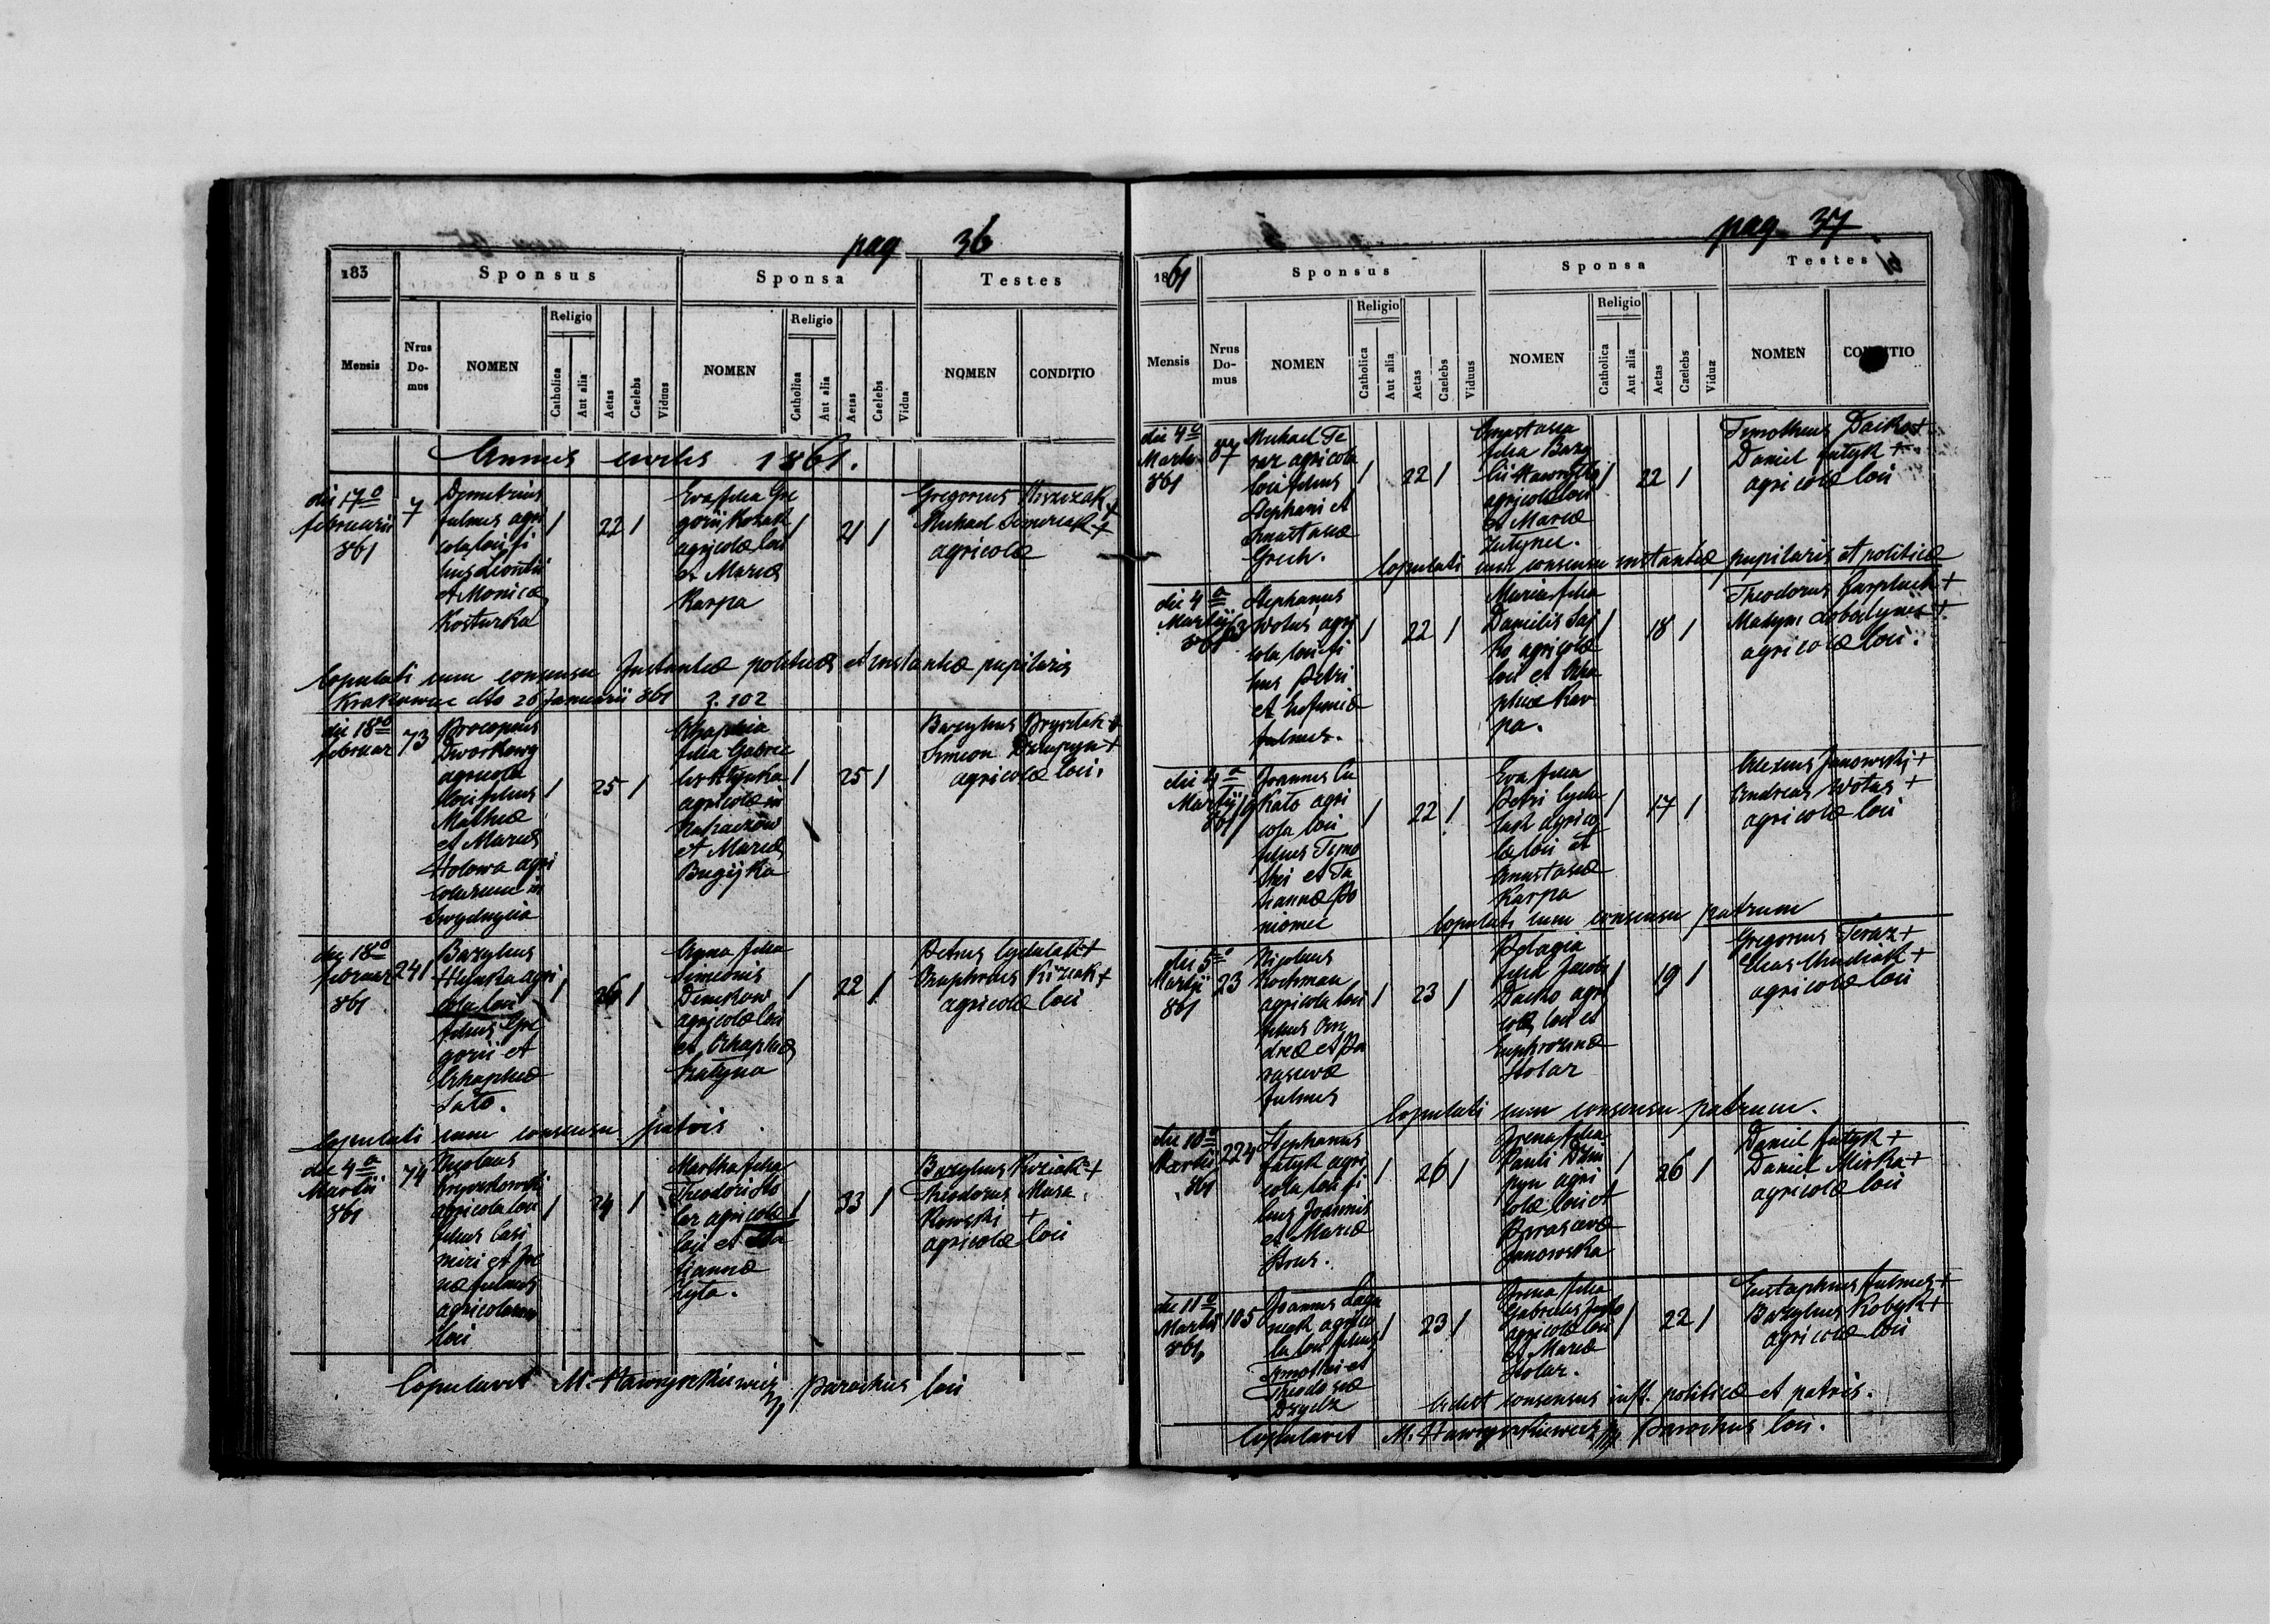 pag 36
183
Sponsus
Sponsa
Testes
Mensis
Nrus Do-mus
NOMEN
Religio
Catholica
Aut alia
Aetas
Caelebs
Viduus
NOMEN
Religio
Catholica
Aut alia
Aetas
Caelebs
Vidua
NOMEN
CONDITIO
Annus 1861.
die 17o
februarii
861
7
Demetrius
fulmes agri
cola loci fi
lius Leontii
et Monicæ
Kosturka
/ 22 /
Eva filia Gre
gorii Kozak
agricolæ loci
et Mariæ
Karpa
/ 21 /
Gregorius +
Michael +
agricolæ
Copulati cum consensu Instantiæ politicæ et instantiæ pupilaris
Krakowac dto 26 Januarii 861 z. 102
die 18o
februar
73
Procopius
Dworkowy
agricola
loci filius
Mathiæ
et Mariæ
Holowa agri
colarum in
/ 25 /
Ahaphia
filia Gabrie
lis Hlynka
agricolæ in
et Mariæ
/ 25 /
Bazylius +
Simeon +
agricolæ loci.
die 18o
februar
861
241
Bazylius
Hlynka agri
cola loci
filius Gre
gorii et
Ahaphiæ
Sato.
/ 26 /
Anna filia
Simeonis
Demkow
agricolæ loci
et Ahaphiæ
/ 22 /
Petrus +
+
agricolæ loci
Copulati cum consensu patris
die 4a
Martii
861
74
Nicolaus
agricola loci
filius Casi
miri et Ire
næ fulmes
agricolarum
loci
/ 24 /
Martha filia
Theodori Sto
lar agricolæ
loci et Ta
tiannæ
Zyta.
/ 23 /
Bazylius Kuziak +
Theodorus Maza
kowski +
agricolæ loci
Copulavit M. Hawryszkiewicz parochus loci
pag 37
1861
Sponsus
Sponsa
Testes
Mensis
Nrus Do-mus
NOMEN
Religio
Catholica
Aut alia
Aetas
Caelebs
Viduus
NOMEN
Religio
Catholica
Aut alia
Aetas
Caelebs
Vidua
NOMEN
CONDITIO
die 4o
Martii
861
87
Michael Te
raz agricola
loci filius
Stephani et
Anastasiæ
Grech.
/ 22 /
Anastasia
filia Bazy
lii
agricolæ loci
et Mariæ
/ 22 /
Timotheus +
Daniel futyk +
agricolæ loci
Copulati cum consensu instantiæ pupilaris et politicæ
die 4a
Martij
861
Stephanus
Wotus agri
cola loci fi
lius Petri
et Eufimiæ
fulmes.
/ 22 /
Maria filia
Danielis Saj
ko agricolæ
loci et Aha
phiæ Kar
pa.
/ 18 /
Theodorus +
+
agricolæ loci.
die 4a
Martij
861
Joannes Cu
kato agri
cola loci
filius Timo
thei et Ta
tiannæ Po
niomec
/ 22 /
Eva filia
Petri Cydu
lak agrico
læ loci et
Anastasiæ
Karpa
/ 17 /
Alexius Janowski +
Andreas Wotus +
agricolæ loci
Copulati cum consensu patrum
die 5o
Martij
861
23
Nicolaus
Kochman
agricola loci
filius An
dreæ et Pa
rascevæ
fulmes
/ 23 /
Pelagia
filia Jacobi
Dacko agri
colæ loci et
Euphrozinæ
Stolar
/ 19 /
Gregorius Teraz +
Elias +
agricolæ loci
Copulati cum consensu patrum.
die 10o
Martii
861
224
Stephanus
futyk agri
cola loci fi
lius Joannis
et Mariæ
/ 26 /
Irena filia
Pauli Dziu
pyn agri
colæ loci et
Parascevæ
Janowska
/ 26 /
Daniel futyk +
Daniel Miska +
agricolæ loci
die 11o
Martij
861
105
Joannes
agrico
la loci filius
Timothei et
Theodosiæ
/ 23 /
Irena filia
Gabrielis
agricolæ loci
et Mariæ
Stolar.
/ 22 /
Eustaphius fulmes +
Bazylius Kobyk +
agricolæ loci
Adest consensus inst. politicæ et patris.
Copulavit M. Hawryszkiewicz parochus loci.